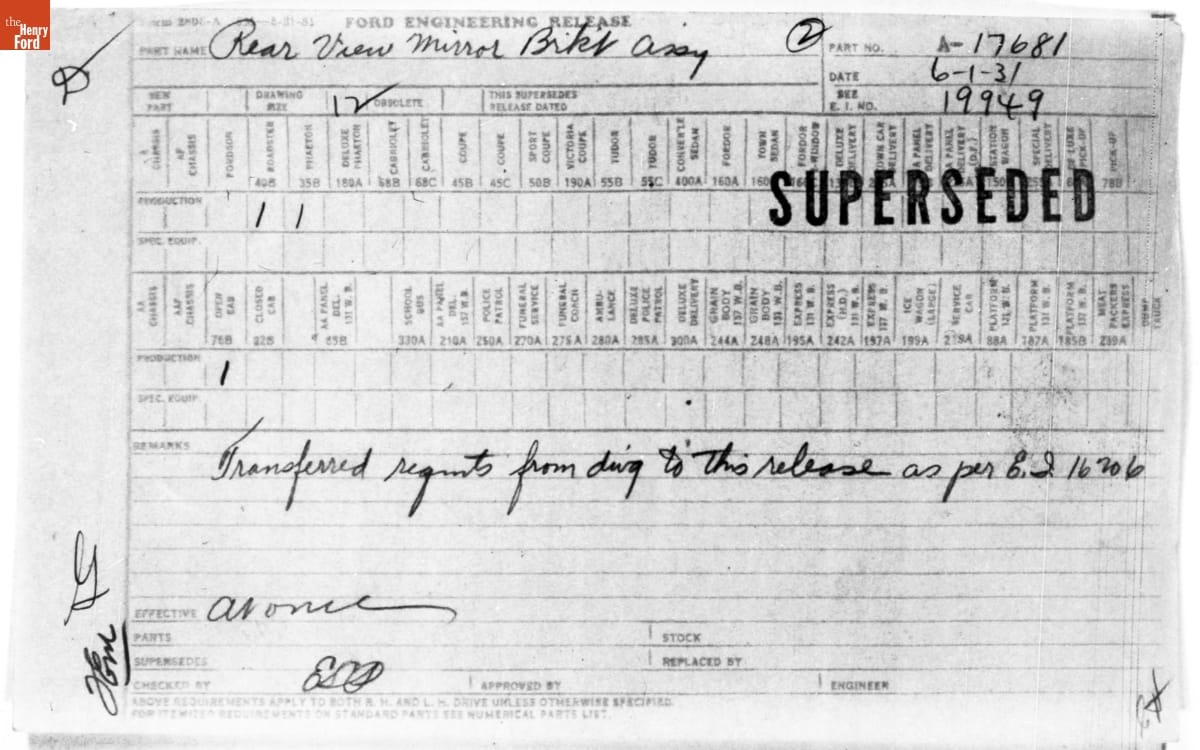 the Henry Ford
FORD ENGINEERING RELEASE
PART NAME Rear View Mirror Brk't Assy ②
PART NO. A-17681
DATE 6-1-31
SEE E. I. NO. 19949
NEW PART DRAWING SIZE 12 OBSOLETE THIS SUPERSEDES RELEASE DATED
A CHASSIS AF CHASSIS FORDSON ROADSTER PHAETON DELUXE PHAETON CABRIOLET CABRIOLET COUPE COUPE SPORT COUPE VICTORIA COUPE TUDOR TUDOR CONVER'LE SEDAN FORDOR TOWN SEDAN FORDOR DELUXE DELIVERY TOWN CAR DELIVERY A PANEL DELIVERY A PANEL DELIVERY (D.F.) STATION WAGON SPECIAL DELIVERY DE LUXE PICK-UP PICK-UP
40B 35B 180A 68B 68C 45B 45C 50B 190A 55B 55C 400A 160A 78B
SUPERSEDED
PRODUCTION 1 1
SPEC. EQUIP.
AA CHASSIS AAF CHASSIS OPEN CAB CLOSED CAB AA PANEL DEL. 131 W. B. SCHOOL BUS AA PANEL DEL. 157 W.B. POLICE PATROL FUNERAL SERVICE FUNERAL COACH AMBU-LANCE DELUXE POLICE PATROL DELUXE DELIVERY GRAIN BODY 157 W.B. GRAIN BODY 131 W.B. EXPRESS 131 W. B. EXPRESS (H.D.) 131 W. B. EXPRESS 157 W. B. ICE WAGON (LARGE) SERVICE CAR PLATFORM 131 W. B. PLATFORM 157 W. B. MEAT PACKERS EXPRESS DUMP TRUCK
76B 82B 85B 330A 210A 250A 270A 275A 280A 285A 300A 244A 248A 195A 242A 197A 199A 88A 187A 185B 239A
PRODUCTION 1
SPEC. EQUIP.
REMARKS
Transferred reqmts from dwg to this release as per E.I. 16206
EFFECTIVE at once
PARTS STOCK
SUPERSEDES REPLACED BY
CHECKED BY APPROVED BY ENGINEER
ABOVE REQUIREMENTS APPLY TO BOTH R. H. AND L. H. DRIVE UNLESS OTHERWISE SPECIFIED.
FOR ITEMIZED REQUIREMENTS ON STANDARD PARTS SEE NUMERICAL PARTS LIST.